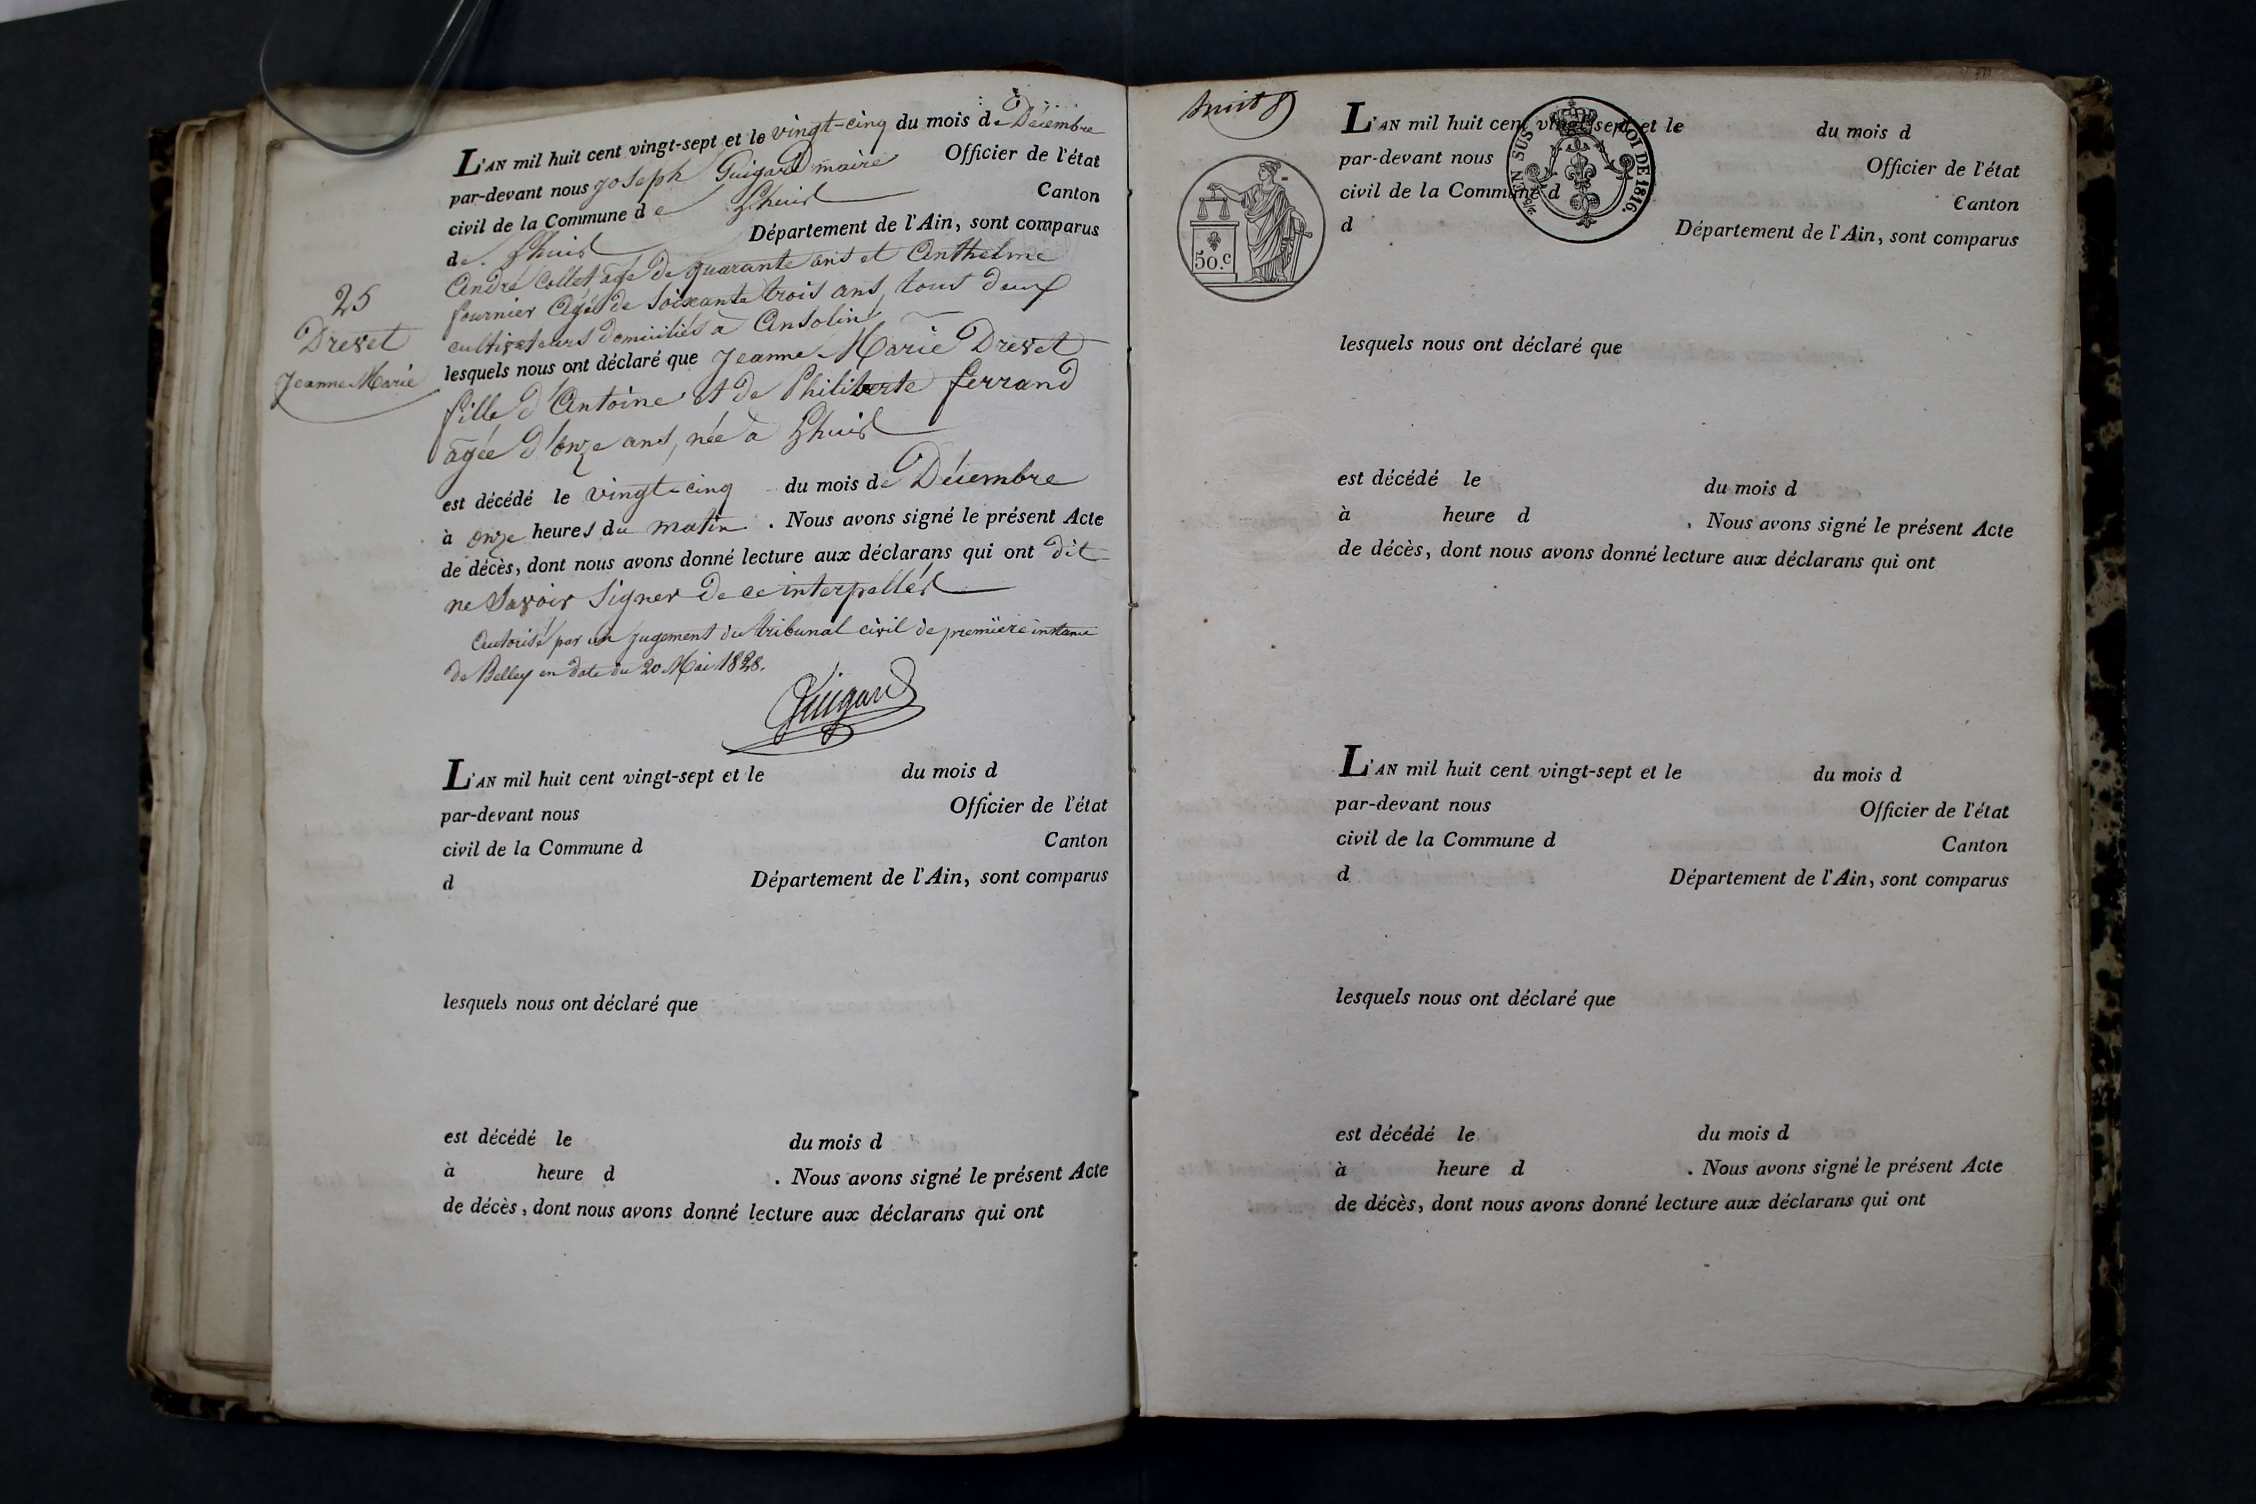 L'AN mil huit cent vingt-sept et le vingt-cinq du mois de Décembre
par-devant nous joseph Guigard maire Officier de l'état
civil de la Commune de Lhuis Canton
de Lhuis Département de l'Ain, sont comparus
André Collet agé de quarante ans et Anthelme
fournier Agé de soixante trois ans, tous deux
cultivateurs domiciliés à Ansolin
lesquels nous ont déclaré que Jeanne Marie Drevet
fille d'Antoine et de Philiberte ferrand
agée d'onze ans, née à Lhuis
est décédé le vingt-cinq du mois de Décembre
à onze heures du matin . Nous avons signé le présent Acte
de décès, dont nous avons donné lecture aux déclarans qui ont dit
ne Savoir Signer de ce interpellés
Autorisé par un jugement du tribunal civil de première instance
de Belley en date du 20 Mai 1828.
Guigard
25
Drevet
Jeanne Marie
L'AN mil huit cent vingt-sept et le du mois d
par-devant nous Officier de l'état
civil de la Commune d Canton
d Département de l'Ain, sont comparus
lesquels nous ont déclaré que
est décédé le du mois d
à heure d . Nous avons signé le présent Acte
de décès, dont nous avons donné lecture aux déclarans qui ont
huit
50.c
EN SUS
LOI DE 1816.
L'AN mil huit cent vingt-sept et le du mois d
par-devant nous Officier de l'état
civil de la Commune d Canton
d Département de l'Ain, sont comparus
lesquels nous ont déclaré que
est décédé le du mois d
à heure d . Nous avons signé le présent Acte
de décès, dont nous avons donné lecture aux déclarans qui ont
L'AN mil huit cent vingt-sept et le du mois d
par-devant nous Officier de l'état
civil de la Commune d Canton
d Département de l'Ain, sont comparus
lesquels nous ont déclaré que
est décédé le du mois d
à heure d . Nous avons signé le présent Acte
de décès, dont nous avons donné lecture aux déclarans qui ont